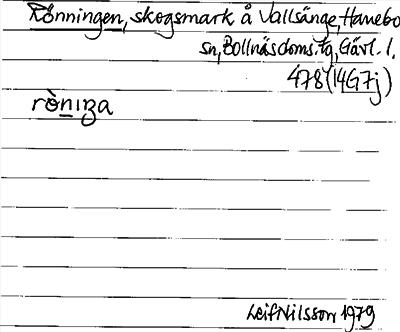 Rönningen, skogsmark å Vallsänge, Hanebo
sn, Bollnäs doms. tg, Gävl. l.
478 (14G7j)
rö̀niŋa
Leif Nilsson 1979